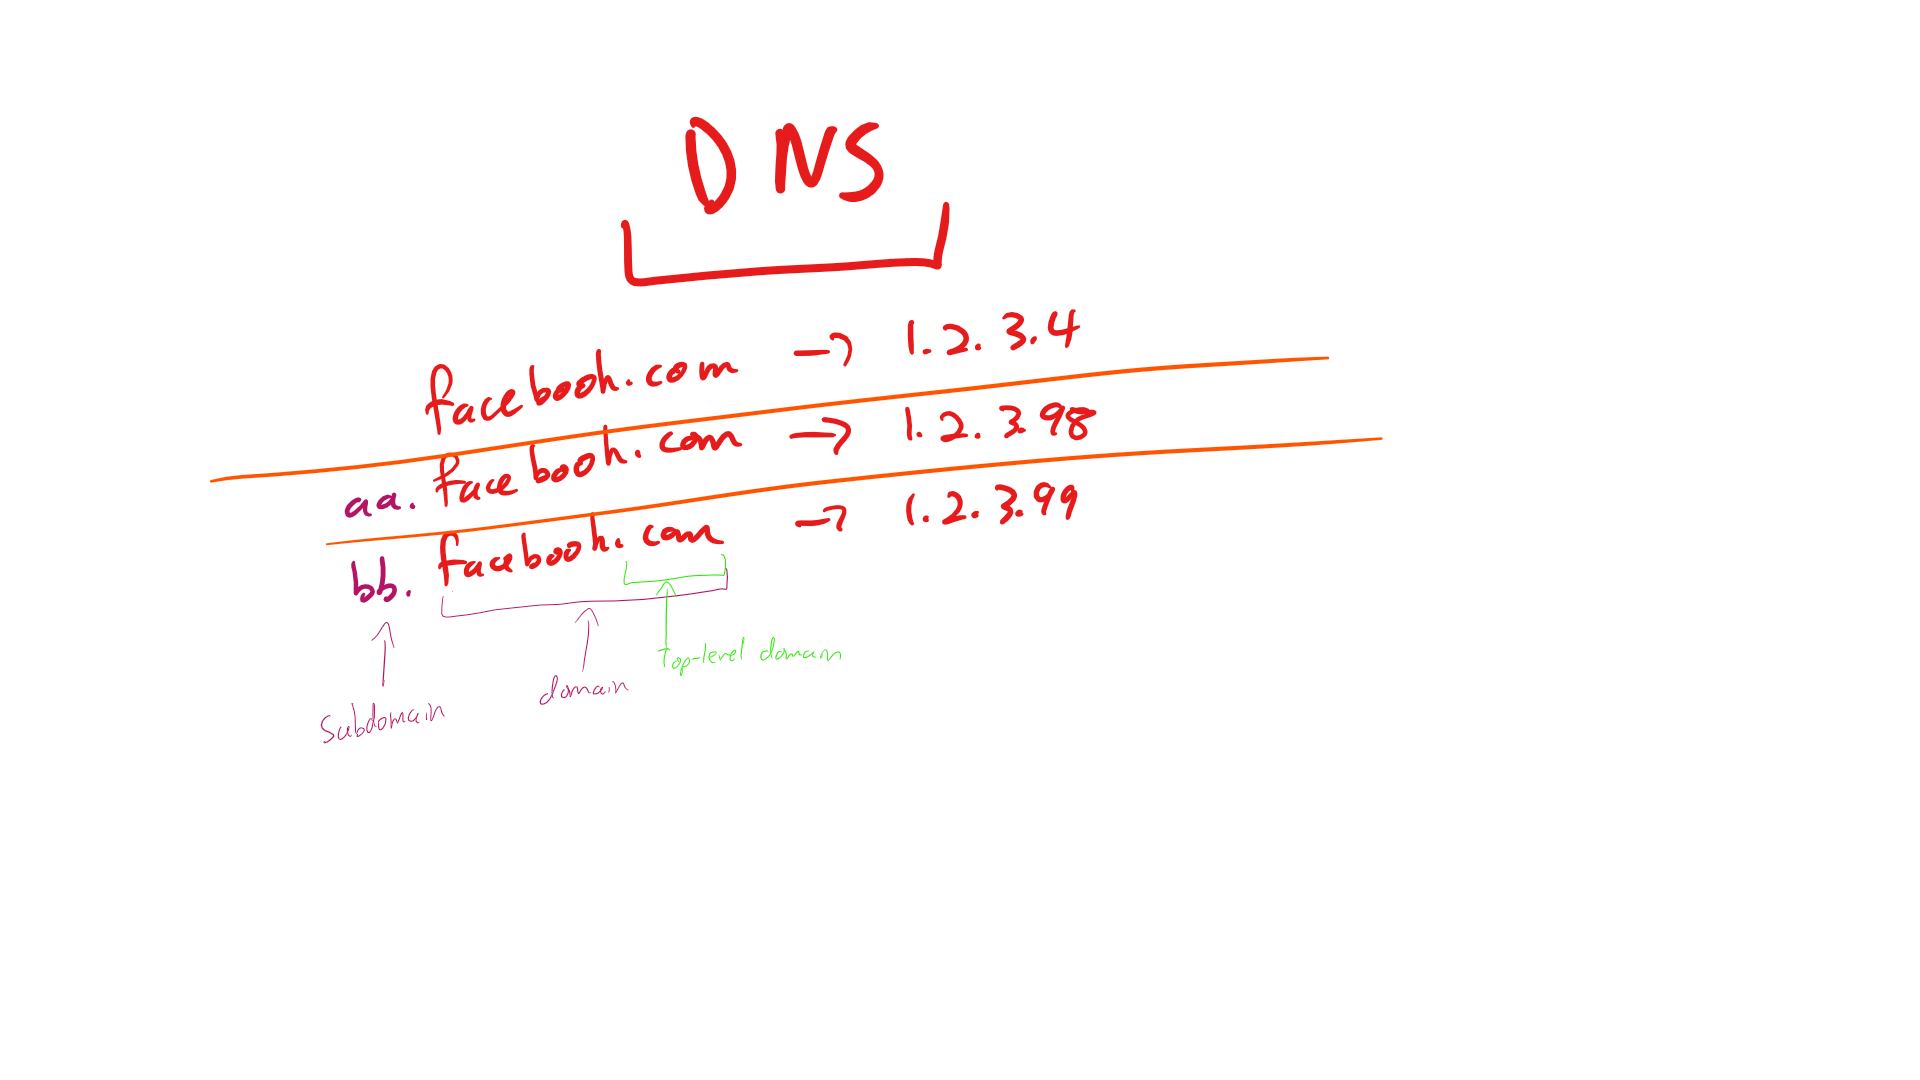 DNS
facebook.com → 1.2.3.4
aa.facebook.com → 1.2.3.98
bb.facebook.com → 1.2.3.99
Top-level domain
domain
Subdomain